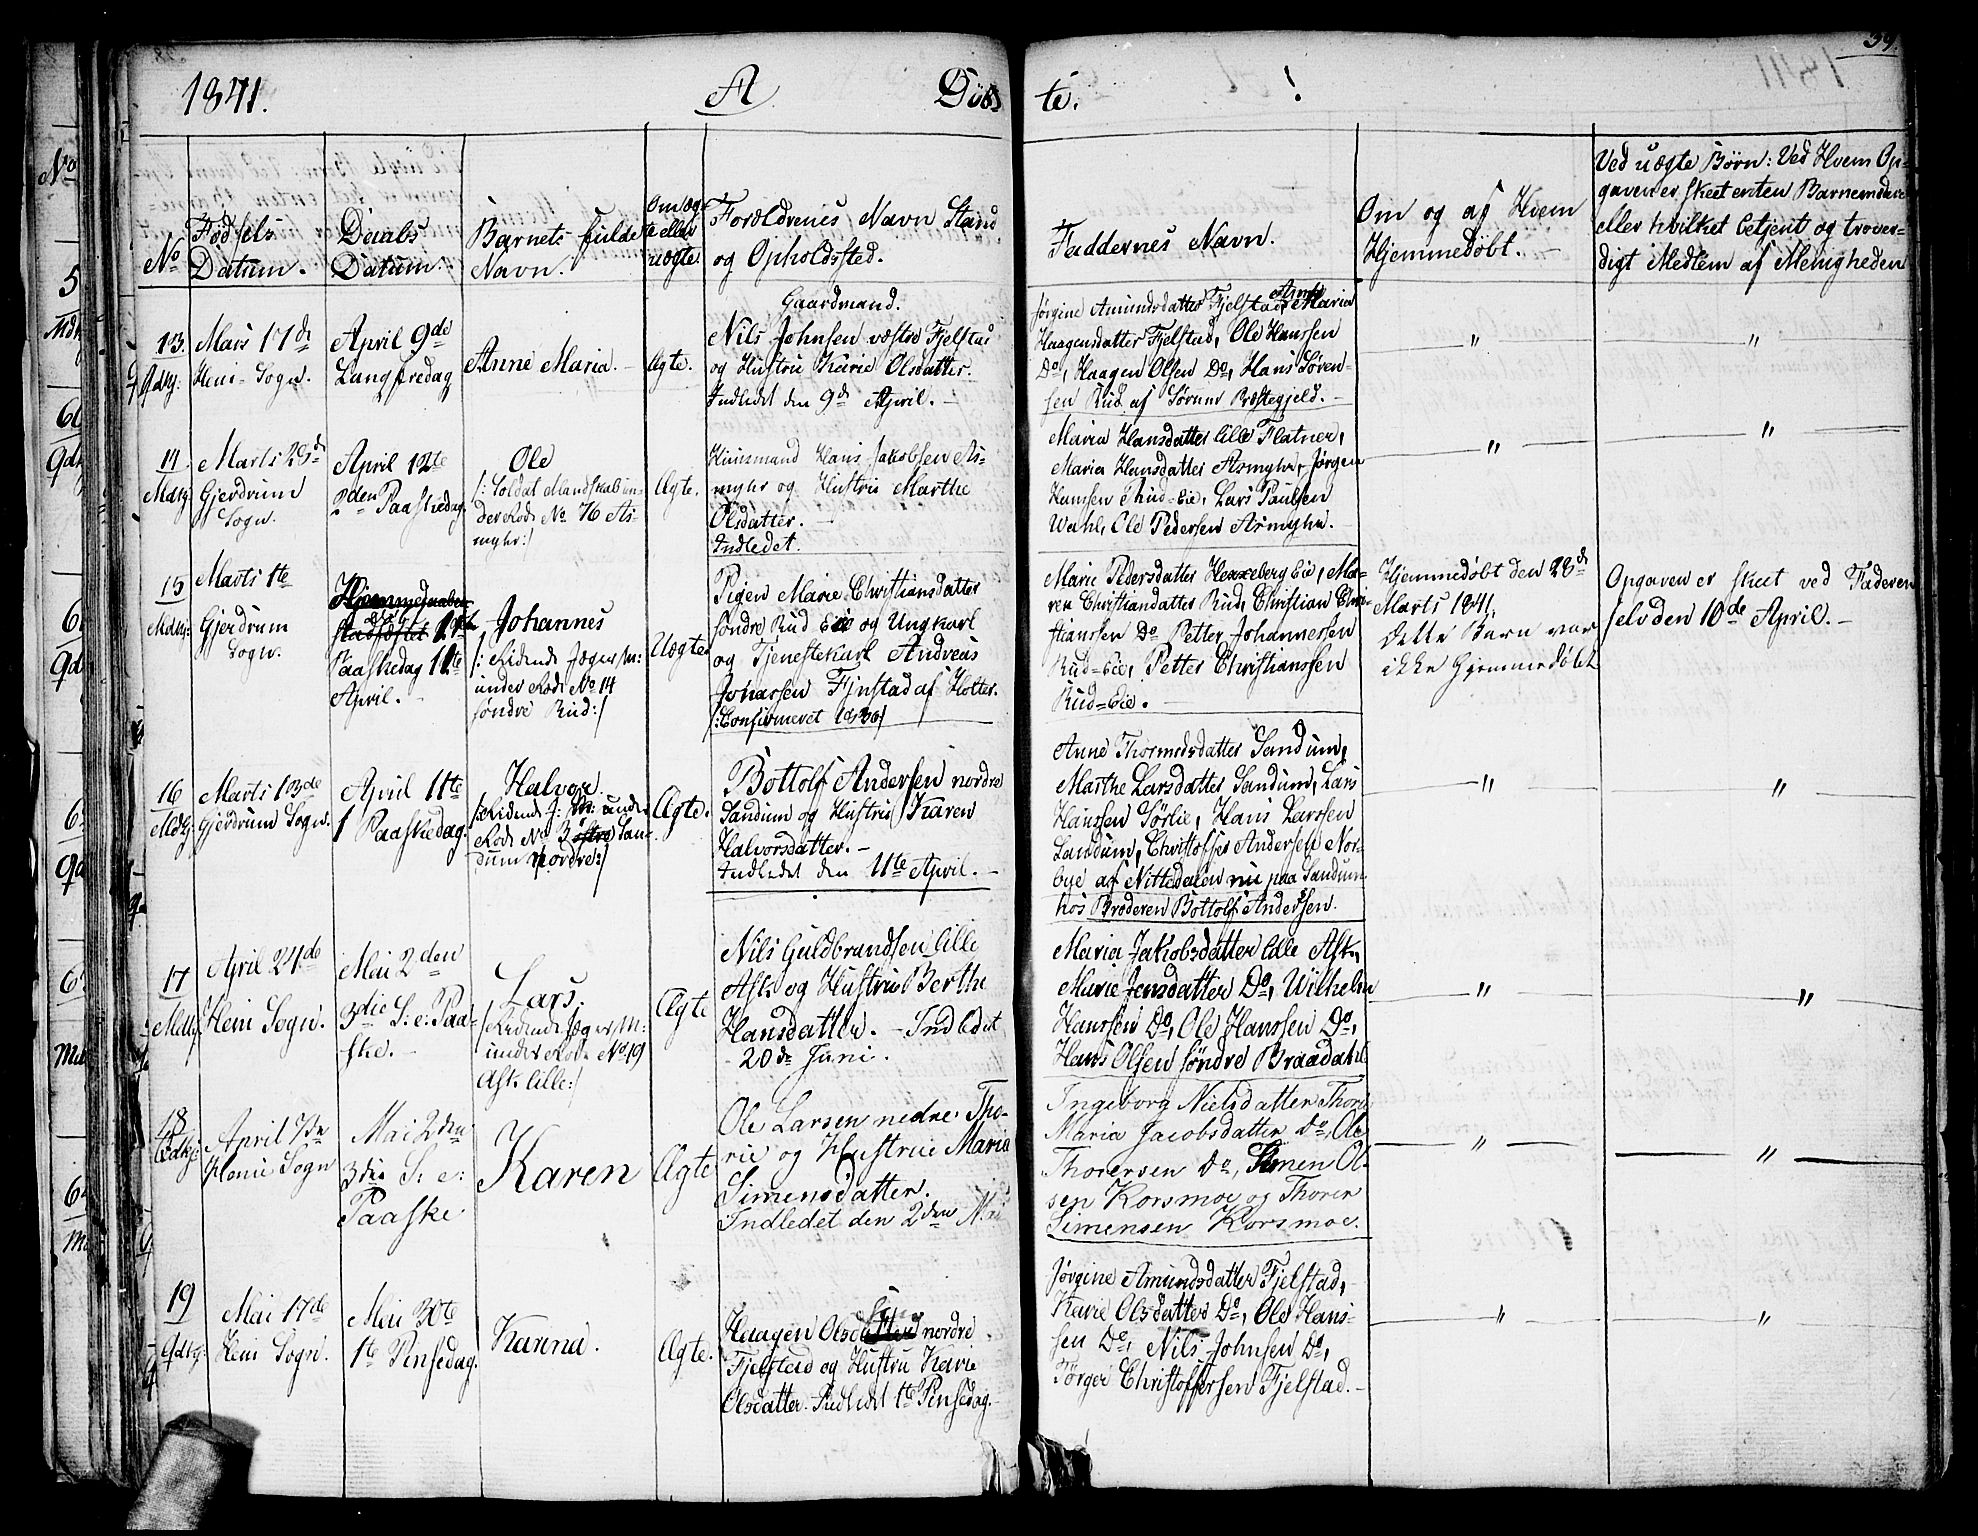 39.
1841. A Döb=
te.
No
Fødsels
Datum.
Daabs
Datum.
Barnets fulde
Navn.
Om æg-
te eller
uægte.
Forældrenes Navn Stand
og Opholdssted.
Faddernes Navn.
Om og af Hvem
Hjemmedøbt.
Ved uægte Børn: Ved Hvem Op-
gaven er skeet enten Barnemoderen
eller hvilket betjent og trover-
digt Medlem af Menigheden
13.
Gdbg:
Mars 17de
Heni-Sogn.
April 9de
Langfredag
Anne Maria.
Ægte.
Gaardmand.
Nils Johnsen væstre Fjelstad
og Hustru Karie Olsdatter.
Indledet den 9de April.
Jørgine Amundsdatter Fjelstad, Anne Maria
Haagensdatter Fjelstad, Ole Hanssen
Do, Haagen Olsen Do, Hans Søren-
sen Rud af Sørum Præstegjeld.
"
"
14
Mdbg
Marts 28de
Gjerdrum
Sogn.
April 12te
2den Paaskedag
Ole
/: Soldat Mandskab un-
der Rode No 76 As-
myhr:/
Ægte.
Huusmand Hans Jakobsen As-
myhr og Hustru Marthe
Olsdatter.
Indledet.
Maria Hansdatter lille Flatner,
Maria Hansdatter Asmyhr, Jørgen
Hansen Rud=Eie, Lars Paulsen
Wahl, Ole Pedersen Asmyhr.
"
"
15
Mdbg:
Marts 1te
Gjerdrum
Sogn.
Paaskedag 11te
April.
Johannes
/: Ridende Jæger M:
under Rode No 14
søndre Rud:/
Uægte
Pigen Marie Christiansdatter
søndre Rud Eie og Ungkarl
og Tjenestekarl Andreas
Johansen Fjnstad af Holter.
/:Confirmeret 1836/
Marie Pedersdatter Hexeberg Eie, Ma-
ren Christiandatter Rud, Christian Chri-
stianssen Do Petter Johannessen
Rud=Eie, Petter Christianssen
Rud=Eie.
Hjemmedøbt den 28de
Marts 1841.
Dette Barn var
ikke hjemmedøbt
Opgaven er skeet ved Faderen
selv den 10de April.
16
Mdbg:
Marts 13de
Gjerdrum Sogn.
April 11te
1 Paaskedag.
Halvor.
/:Ridende J: M: under
Rode No 3 østre San-
dum nordre:/
Ægte.
Bottolf Andersen nordre
Sandum og Hustru Karen
Halvorsdatter.
Indledet den 11te April.
Anne Thormodsdatter Sandum,
Marthe Larsdatter Sandum, Lars
Hanssen Sørlie, Hans Larssen
Sandum, Christoffer Andersen Nor-
bye af Nittedalen nu paa Sandum
hos Broderen Bottolf Andersen.
"
"
17
Mdbg
April 24de
Heni Sogn.
Mai 2den
3die S: e: Paa-
ske.
Lars.
/:Ridende Jæger M:
under Rode No 191
Ask lille:/
Ægte
Nils Guldbrandsen lille
Ask og Hustru Berthe
Hansdatter. Indledet
20de Juni.
Maria Jakobsdatter lille Ask,
Marie Jensdatter Do, Wilhelm
Hanssen Do, Ole Hanssen Do,
Hans Olsen søndre Braadahl
"
"
18
Gdbg:
April 7de
Heni Sogn
Mai 2den
3die S: e:
Paaske
Karen
Ægte
Ole Larsen nedre Tho-
rie og Hustrue Maria
Simensdatter.
Indledet den 2den Mai
Ingeborg Nielsdatter Thori
Maria Jacobsdatter do, Ole
Thorersen Do, Simen Ol-
sen Korsmoe og Thorer
Simensen Korsmoe.
"
"
19
Gdbg:
Mai 17de
Heni Sogn.
Mai 30te
1te Pinsedag.
Karina.
Ægte.
Haagen Olsen nordre
Fjelstad og Hustru Karie
Olsdatter. Indledet 1te Pinsedag.
Jørgine Amundsdatter Fjelstad,
Karie Olsdatter Do, Ole Hans-
sen Do, Nils Johnsen Do,
Tørger Christoffersen Fjelstad.
"
"